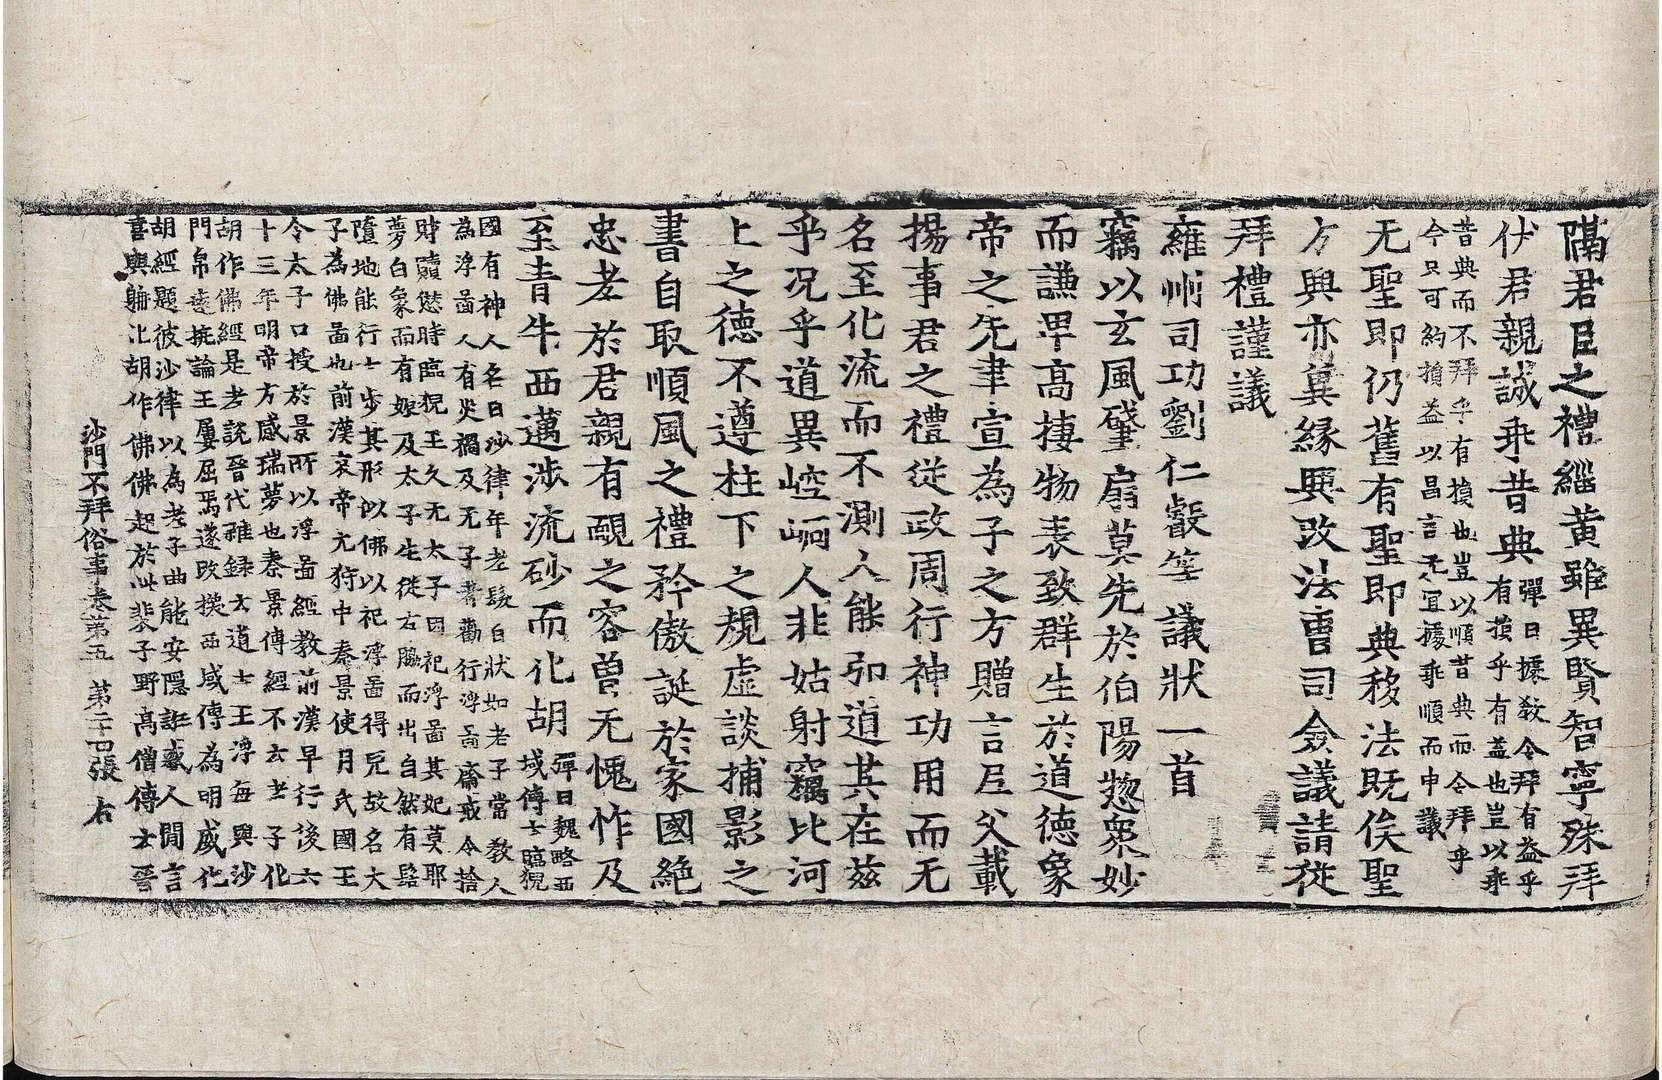 隔君臣之禮緇黃雖異賢智寧殊拜
伏君親誠乖昔典彈曰據敎令拜有益乎
有損乎有益也豈以乖
昔典而不拜乎有損也豈以順昔典而令拜乎
今只可約損益以昌言无冝據乖順而申議
无聖即仍舊有聖即典移法既俟聖
方興亦兾緣興改法曺司僉議請從
拜禮謹議
雍州司功劉仁叡等議狀一首
竊以玄風肇扇莫先於伯陽惣衆妙
而謙卑高棲物表致群生於道德象
帝之先聿宣為子之方贈言尼父載
揚事君之禮從政周行神功用而无
名至化流而不測人能弘道其在兹
乎况乎道異崆峒人非姑射竊比河
上之德不遵柱下之規虛談捕影之
書自取順風之禮矜傲誕於家國絶
忠孝於君親有靦之容曽无愧怍及
至青牛西邁涉流砂而化胡彈曰魏略西
域傳云臨猊
國有神人名曰沙律年老髮白狀如老子當敎人
為浮啚人有災禍及无子者勸行浮啚齋戒令捨
財贖愆時臨猊王久无太子因祀浮啚其妃莫耶
夢白象而有娠及太子生從右脇而出自然有髻
墮地能行七步其形似佛以祀浮啚得兒故名大
子為佛啚也前漢哀帝元狩中秦景使月氏國王
令太子口授於景所以浮啚經教前漢早行後六
十三年明帝方感瑞夢也秦景傳經不云老子化
胡作佛經是老說晉代雜録云道士王浮每與沙
門帛遠抗論王屢屈焉遂改換西域傳為明威化
胡經題彼沙律以為老子曲能安隱誑惑人間言
喜與聃化胡作佛佛起於此裴子野高僧傳云晉
沙門不拜俗事卷第五 第二十四張 右